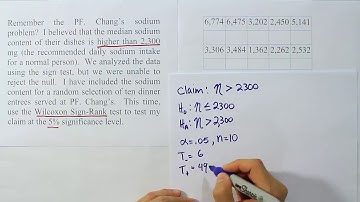 Remember the PF. Chang's sodium
problem? I believed that the median sodium
content of their dishes is higher than 2,300
mg (the recommended daily sodium intake
for a normal person). We analyzed the data
using the sign test, but we were unable to
reject the null. I have included the sodium
content for a random selection of ten dinner
entrees served at PF. Chang's. This time,
use the Wilcoxon Sign-Rank test to test my
claim at the 5% significance level.
6,774 6,475 3,202 2,450 5,141
3,306 3,484 1,362 2,231 2,532
Claim: η > 2300
H₀: η ≤ 2300
Hₐ: η > 2,300
α=.05, n=10
T₋ = 6
T₊ = 49